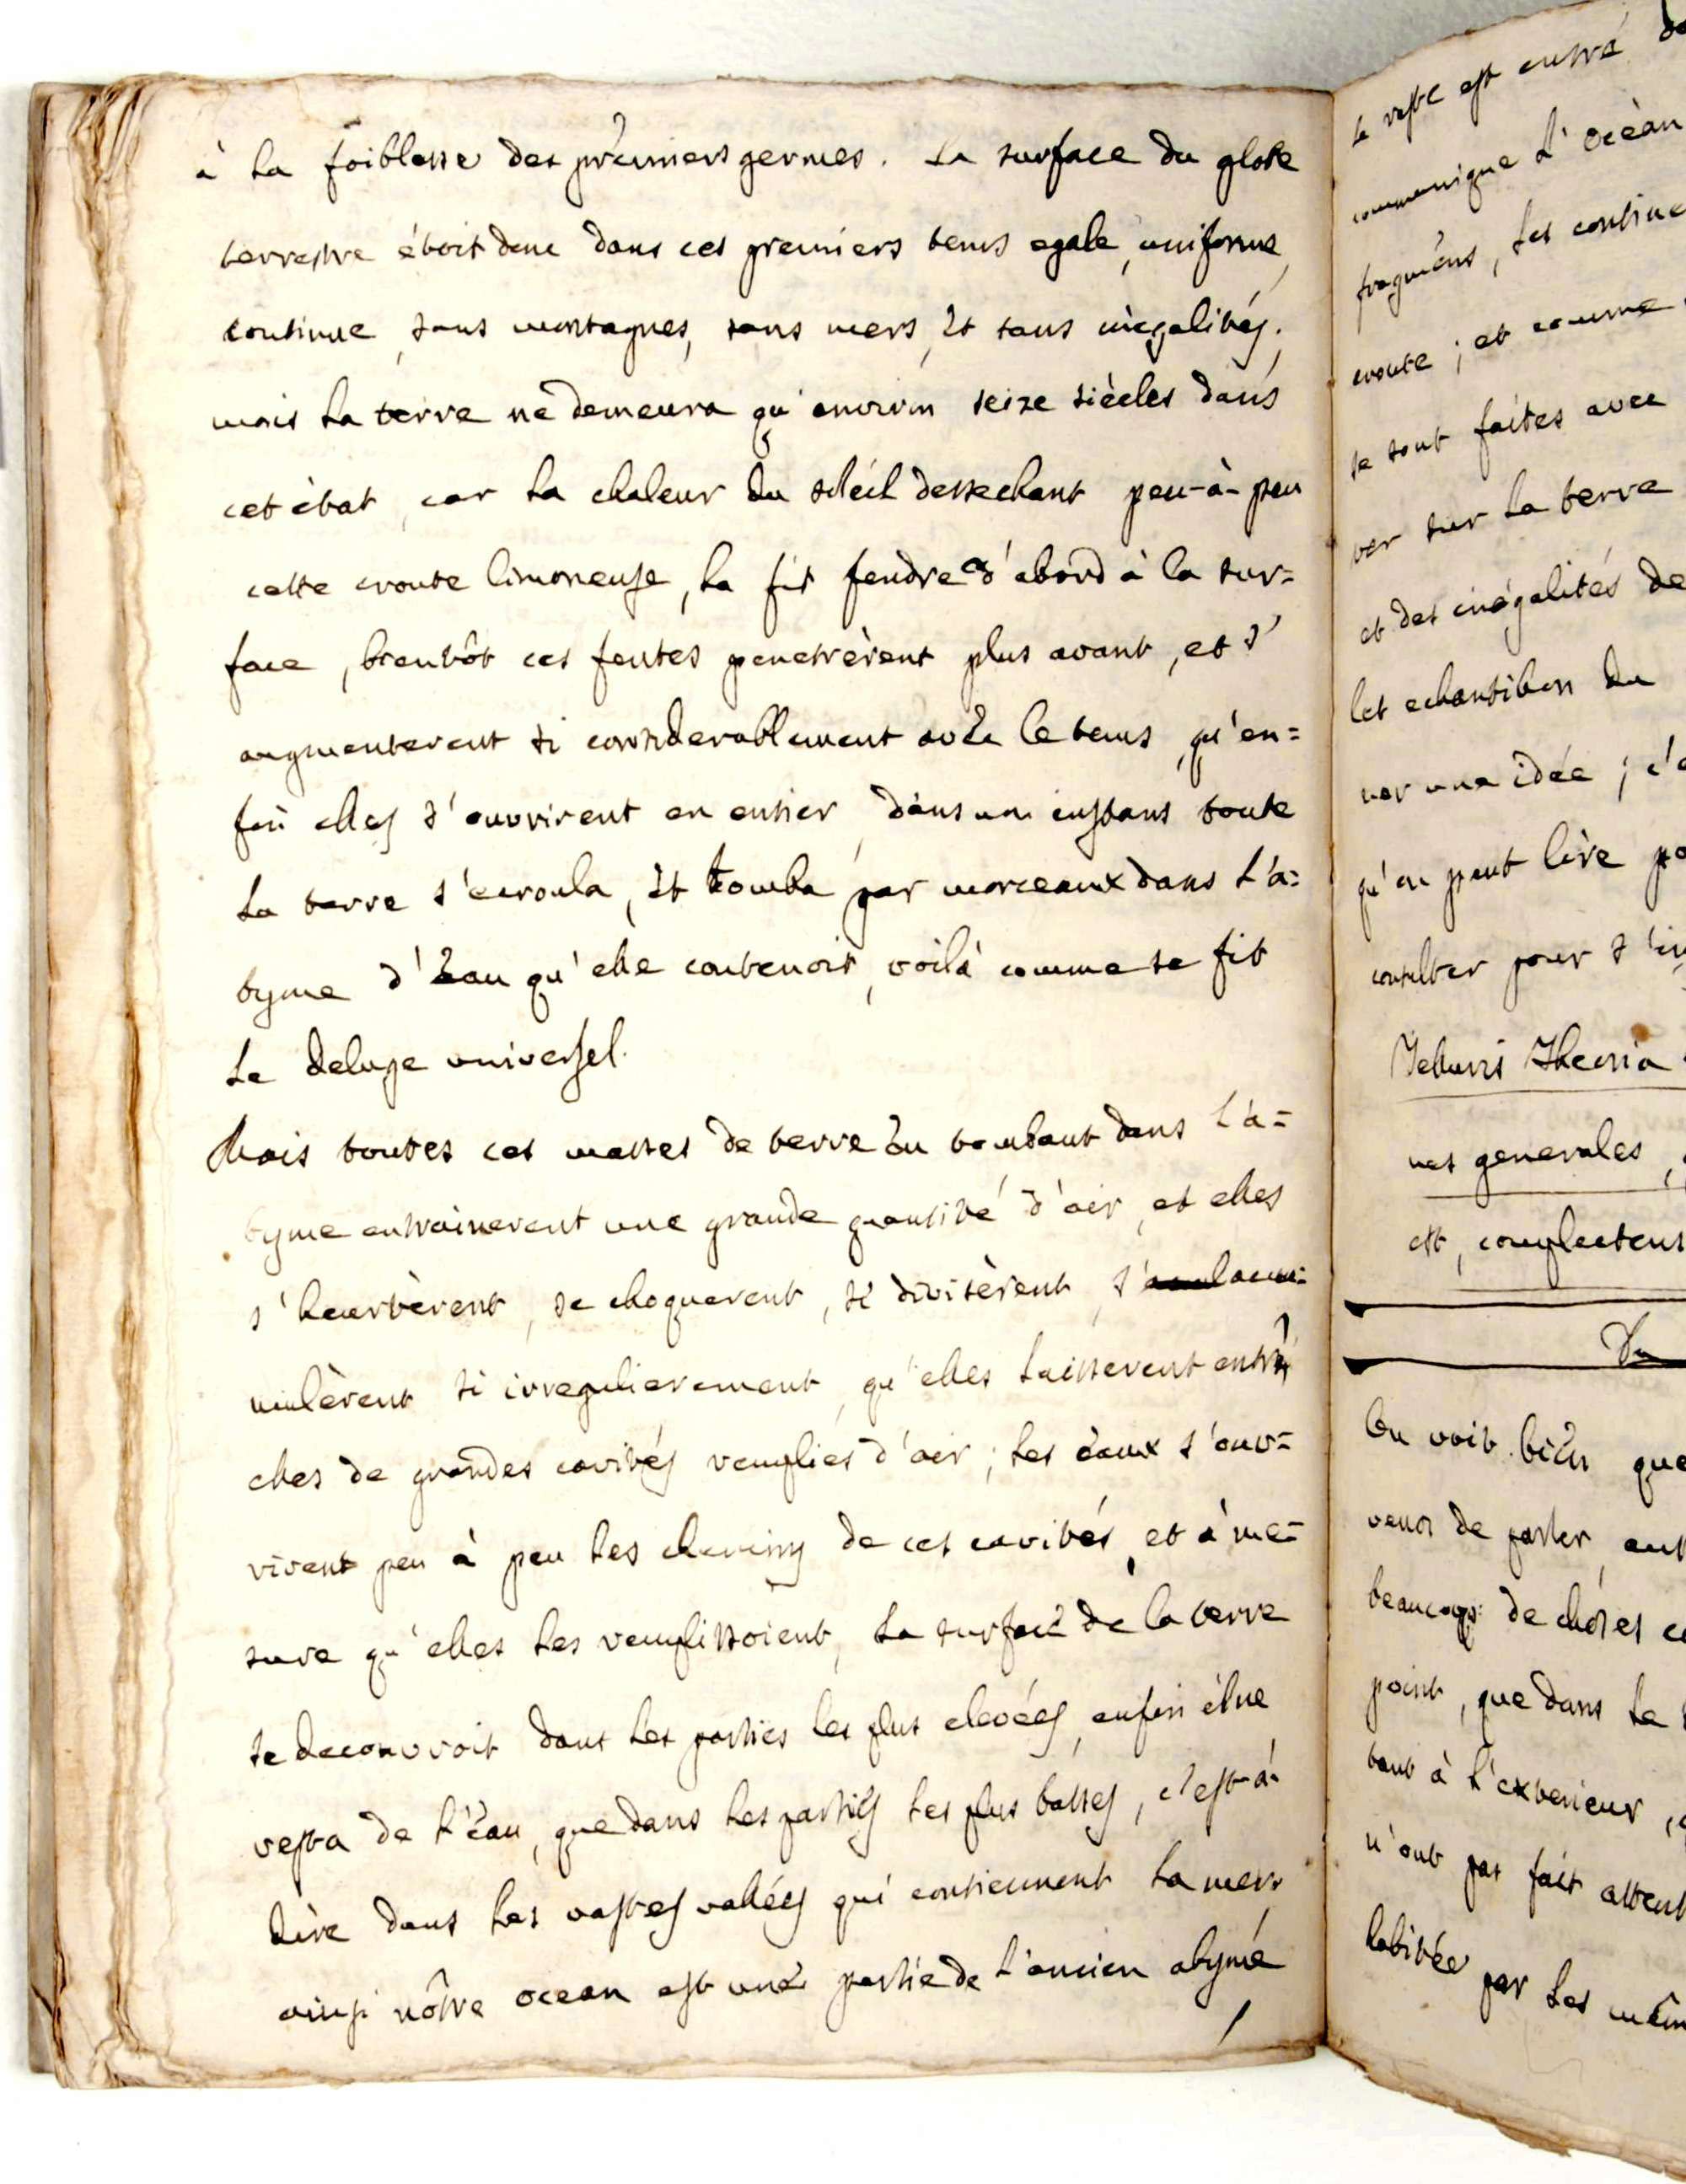 à la foiblesse des premiers germes. La surface du globe
terrestre étoit donc dans ces premiers tems egale, uniforme,
continue, sans montagnes, sans mers, et sans inégalités.
mais la terre ne demeura qu'environ seize siècles dans
cet ètat, car la chaleur du soleil dessechant peu-à-peu
cette croute limoneuse, la fit fendre d'abord à la sur=
face, bientôt ces fentes penetrèrent plus avant, et s'
augmenterent si considerablement avec le tems, qu'en=
fin elles s'ouvrirent en entier, dans un instans toute
la terre s'ecroula, et tomba par morceaux dans l'a=
byme d'eau qu'elle contenoit, voilà comme se fit
le deluge universel.
Mais toutes ces masses de terre en tombant dans l'a=
byme entrainerent une grande quantité d'air, et elles
s'heurtèrent, se choquerent, se divisèrent, s'accu=
mulèrent si irregulierement, qu'elles laisserent entre
elles de grandes cavités remplies d'air; les eaux s'ouv=
rirent peu à peu les chemins de ces cavités, et à me=
sure qu'elles les remplissoient, la surface de la terre
se decouvroit dans les parties les plus elevées, enfin il ne
resta de l'eau, que dans les parties les plus basses, c'est-à-
dire dans les vastes vallées qui contiennent la mer.
ainsi nôtre ocean est une partie de l'ancien abyme
le reste est entré
communique l'océan
fragmens, les contine
croute; et comme
se sont faites avec
ver sur la terre
et des inégalités de
let echantillon du
ner une idée; c'e
qu'on peut lire po
consulter pour s'in
Telluris Theoria
nes generales,
est, complectens
On voit bien que
venons de parler, ont
beaucoup de choses
point, que dans le
tant à l'exterieur,
n'ont pas fait attent
habitée par les mêm